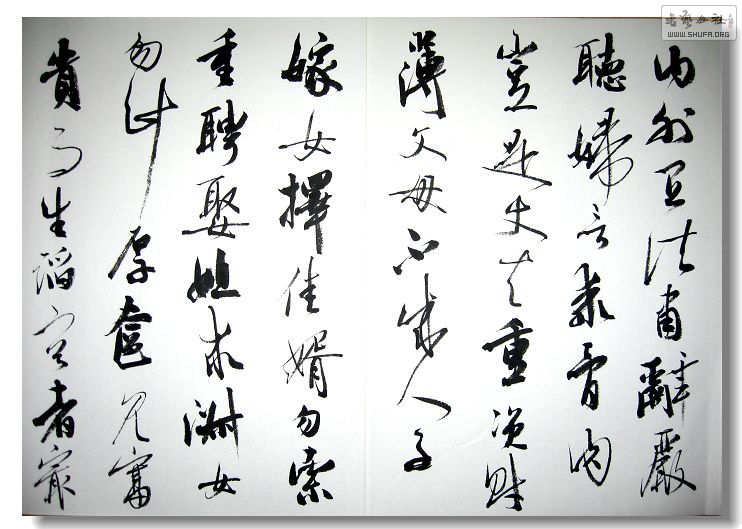 内外宜法肅辭嚴
聽婦言乖骨肉
豈是丈夫重資財
薄父母不成人子
嫁女擇佳婿勿索
重聘娶媳求淑女
勿計厚奩見富
貴而生諂容者最
书艺公社
WWW.SHUFA.ORG